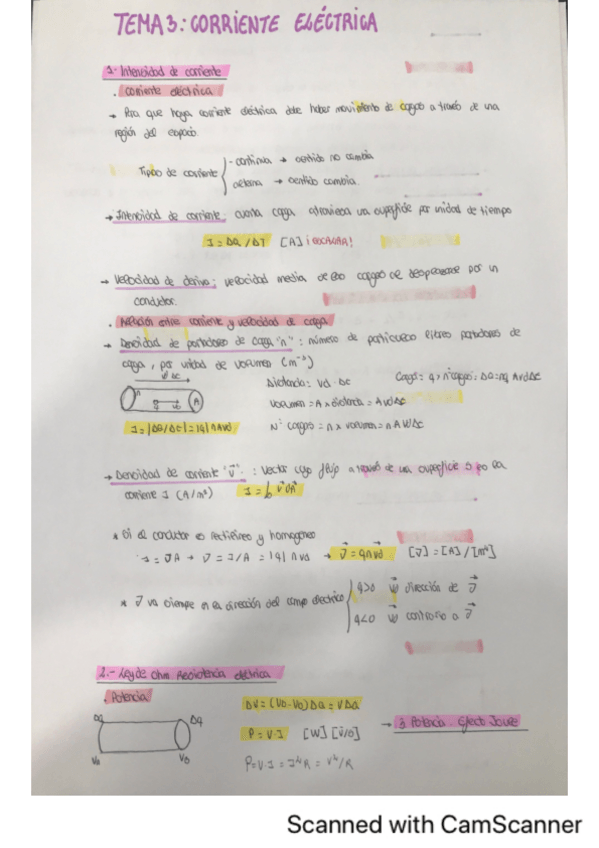 TEMA 3: CORRIENTE ELÉCTRICA
1- Intensidad de corriente
. corriente eléctrica
→ Para que haya corriente eléctrica debe haber movimiento de cargas a través de una
región del espacio.
- continua → sentido no cambia
Tipos de corriente
alterna → sentido cambia.
→ Intensidad de corriente: cuanta carga atraviesa una superficie por unidad de tiempo
I = ΔQ / ΔT [A] ¡ESCALAR!
→ Velocidad de deriva: velocidad media de las cargas al desplazarse por un
conductor.
. Relación entre corriente y velocidad de carga
→ Densidad de portadores de carga "n": número de partículas libres portadoras de
carga, por unidad de volumen (m⁻³)
Distancia: Vd · Δt Carga: q, nºcargas: ΔQ = nq AVdΔt
Volumen = A x distancia = A Vd Δt
I = |ΔQ/Δt| = |q| n A Vd Nº cargas = n x volumen = n A Vd Δt
→ Densidad de corriente "J": vector cuyo flujo a través de una superficie S es la
corriente I (A/m²)
* Si el conductor es rectilíneo y homogéneo
I = JA → J = I/A = |q| n vd → J = q n vd [J] = [A] / [m²]
q>0 dirección de J
* J va siempre en la dirección del campo eléctrico
q<0 contrario a J
2.- Ley de Ohm. Resistencia eléctrica
. Potencia
ΔU = (Va - Vb) ΔQ = VΔQ
Δq Δq
P = V · I [W] [J/s] → 3 Potencia. Efecto Joule
Va Vb
P = V · I = I²R = V²/R
Scanned with CamScanner